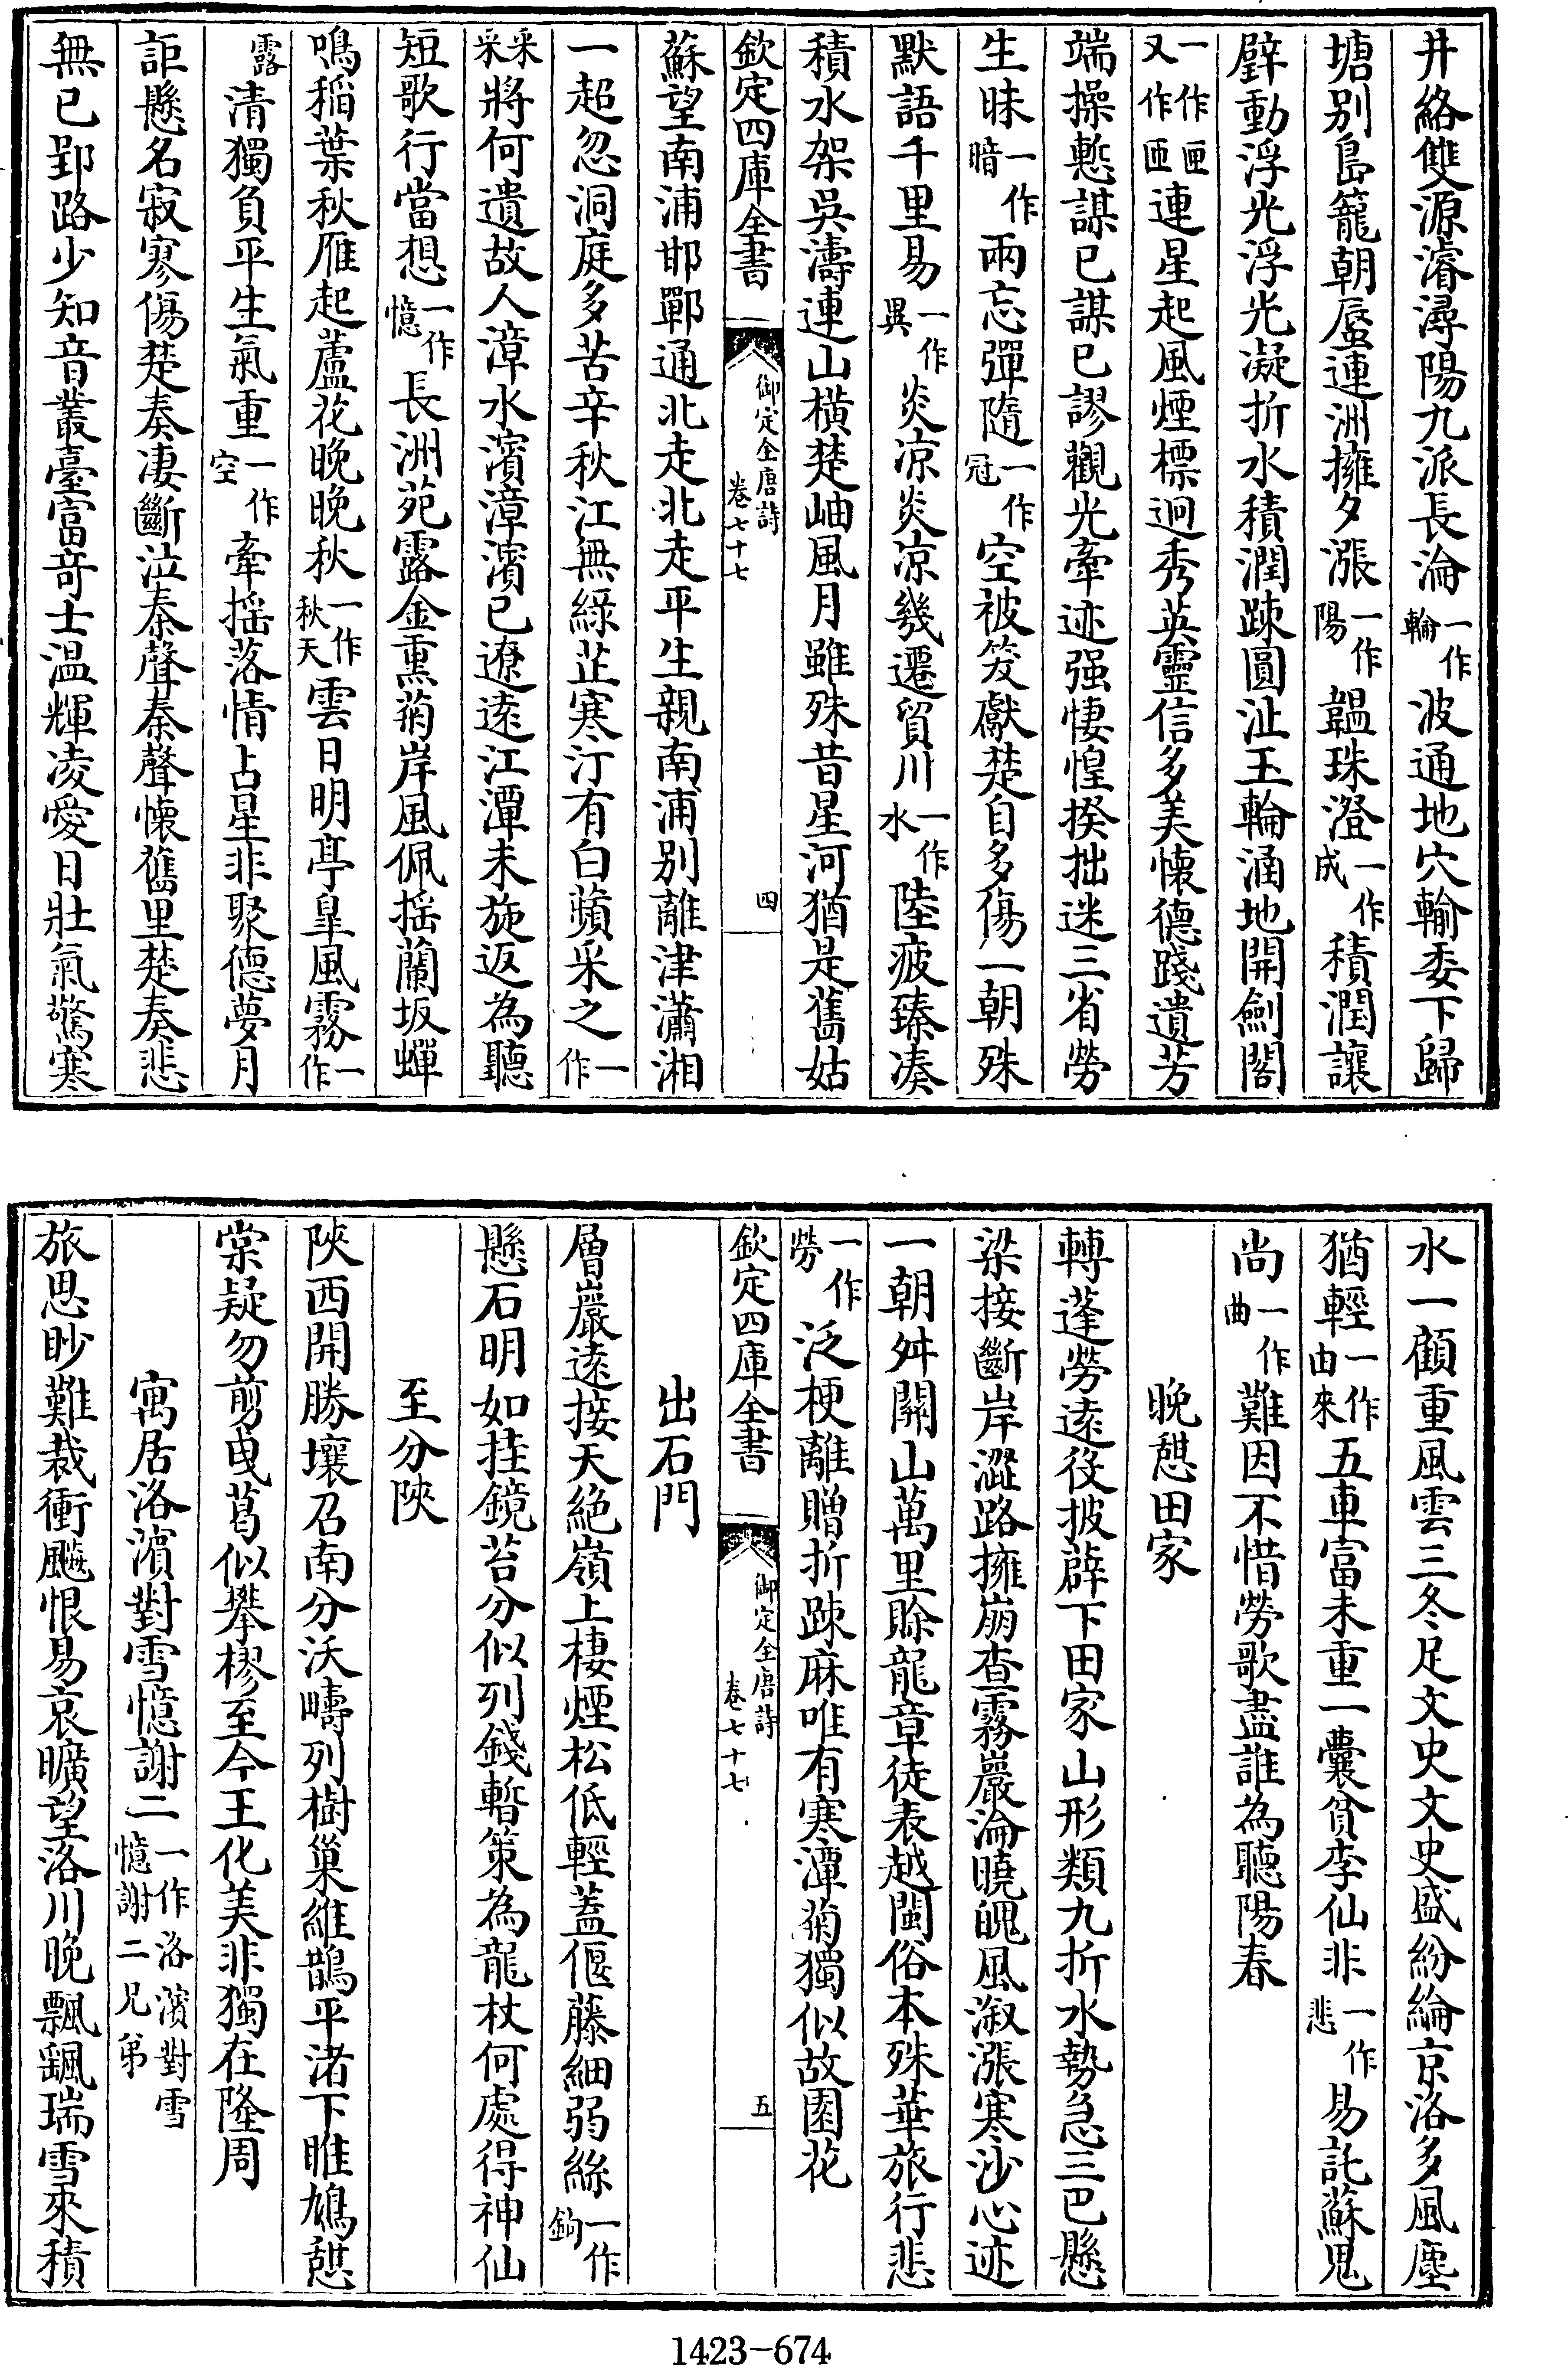 井絡雙源濬潯陽九派長淪一作輪波通地穴輸委下歸
塘别島籠朝蜃連洲擁夕漲一作陽韞珠澄一作成積潤讓
璧動浮光浮光凝折水積潤疎圓沚玉輪涵地開劍閣
一作匣又作匝連星起風煙標迥秀英靈信多美懷德踐遺芳
端操慙謀已謀已謬觀光牽迹强悽惶揆拙迷三省勞
生昧一作暗兩忘彈隨一作冠空被笑獻楚自多傷一朝殊
默語千里易一作異炎凉炎凉幾遷貿川一作水陸疲臻凑
積水架吳濤連山横楚岫風月雖殊昔星河猶是舊姑
欽定四庫全書
御定全唐詩
卷七十七
四
蘇望南浦邯鄲通北走北走平生親南浦别離津瀟湘
一超忽洞庭多苦辛秋江無緑芷寒汀有白蘋采之一作
采采將何遺故人漳水濱漳濱已遼遠江潭未旋返為聽
短歌行當想一作憶長洲苑露金熏菊岸風佩揺蘭坂蟬
鳴稻葉秋雁起蘆花晚晚秋一作秋天雲日明亭臯風霧一作
露清獨負平生氣重一作空牽揺落情占星非聚德夢月
詎懸名寂寥傷楚奏凄斷泣秦聲秦聲懷舊里楚奏悲
無已郢路少知音叢臺富奇士温輝凌愛日壯氣驚寒
水一顧重風雲三冬足文史文史盛紛綸京洛多風塵
猶輕一作由來五車富未重一囊貧李仙非一作悲易託蘇鬼
尚一作曲難因不惜勞歌盡誰為聽陽春
晚憇田家
轉蓬勞遠役披薜下田家山形類九折水勢急三巴懸
梁接斷岸澀路擁崩查霧巖淪曉魄風溆漲寒沙心迹
一朝舛關山萬里賒龍章徒表越閩俗本殊華旅行悲
一作勞泛梗離贈折疎麻唯有寒潭菊獨似故園花
欽定四庫全書
御定全唐詩
卷七十七
五
出石門
層巖遠接天絶嶺上棲煙松低輕蓋偃藤細弱絲一作鉤
懸石明如挂鏡苔分似列錢暫策為龍杖何處得神仙
至分陝
陝西開勝壤召南分沃疇列樹巢維鵲平渚下雎鳩憇
棠疑勿剪曳葛似攀樛至今王化美非獨在隆周
寓居洛濱對雪憶謝二一作洛濱對雪憶謝二兄弟
旅思眇難裁衝飈恨易哀曠望洛川晚飄颻瑞雪來積
1423-674